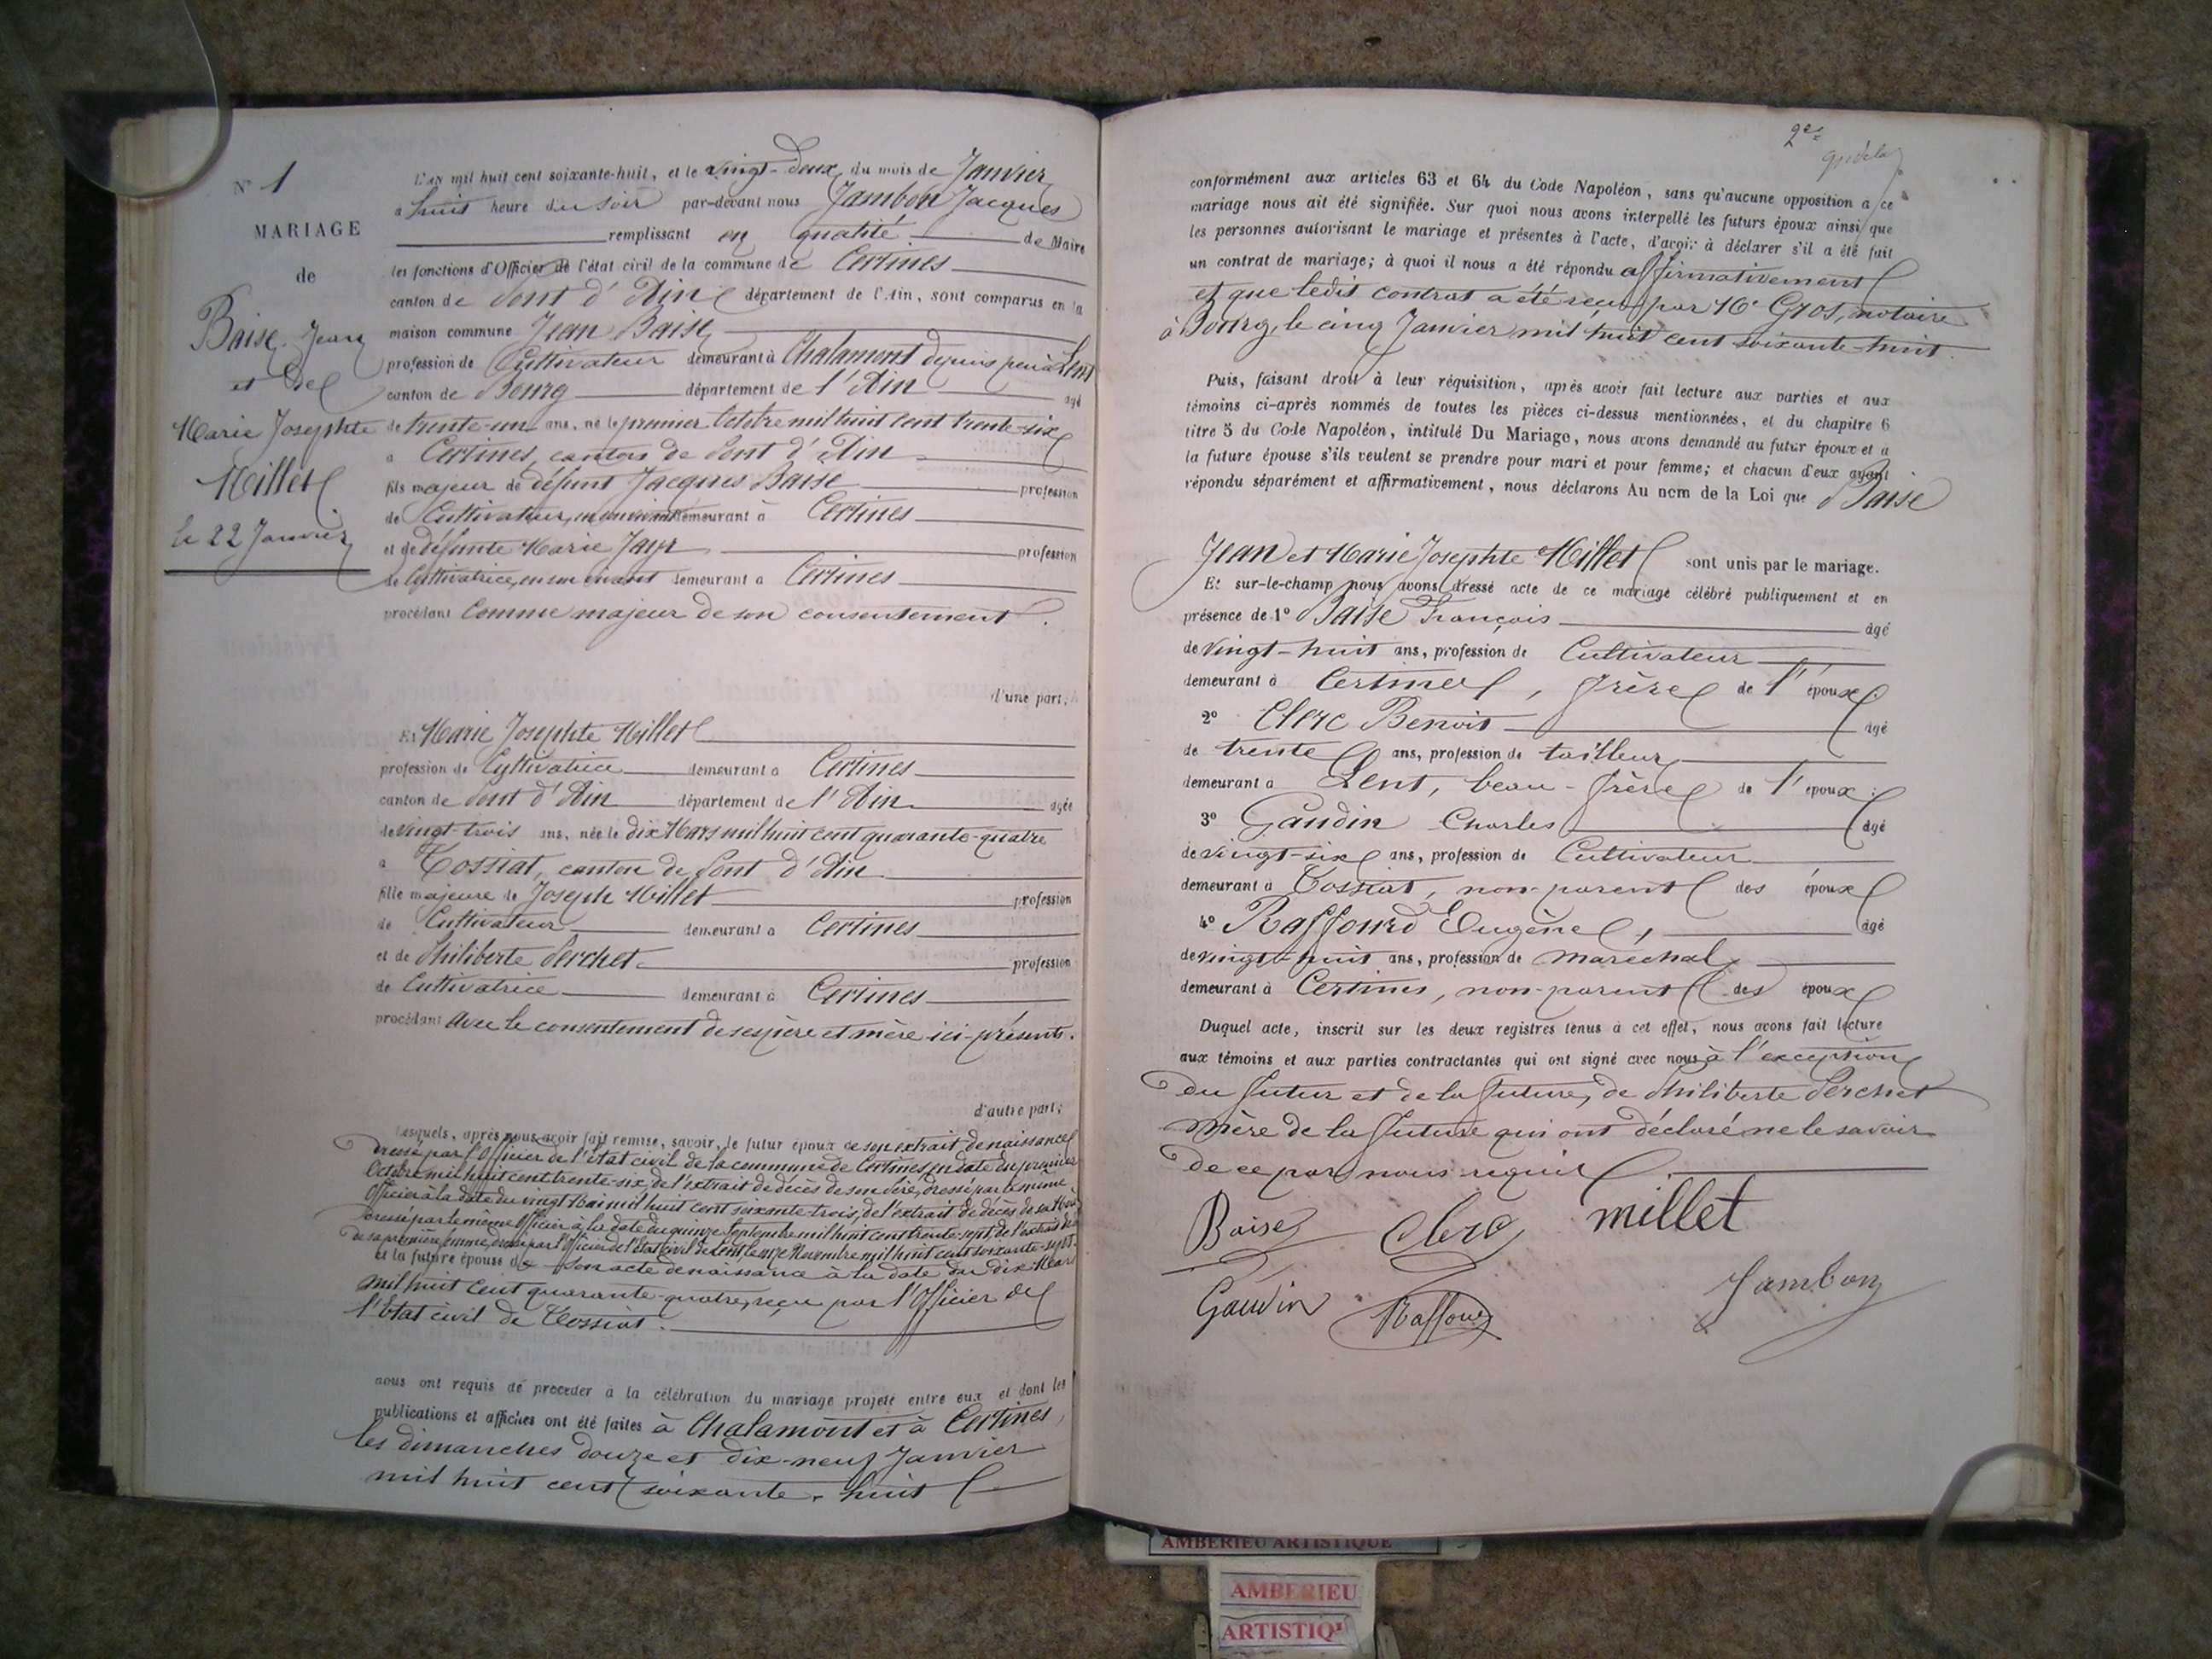 N° 1
MARIAGE
de
Baise Jean
et de
Marie Josephte
Millet
le 22 Janvier
L'an mil huit cent soixante-huit, et le vingt-deux du mois de Janvier
à huit heure du soir par-devant nous Jambon Jacques
remplissant en qualité de Maire
les fonctions d'Officier de l'état civil de la commune de Certines
canton de Pont d'Ain département de l'Ain, sont comparus en la
maison commune Jean Baise
profession de Cultivateur demeurant à Chalamont depuis peu à Lent
canton de Bourg département de l'Ain agé
de trente-un ans, né le premier Octobre mil huit cent trente-six
à Certines, canton de Pont d'Ain
fils majeur de défunt Jacques Baise profession
de Cultivateur, en son vivant demeurant à Certines
et de défunte Marie Jayr profession
de Cultivatrice, en son vivant demeurant à Certines
procédant comme majeur de son consentement.
d'une part,
Et Marie Josephte Millet
profession de Cultivatrice demeurant à Certines
canton de Pont d'Ain département de l'Ain agée
de vingt-trois ans, née le dix Mars mil huit cent quarante-quatre
à Tossiat, canton de Pont d'Ain
fille majeure de Joseph Millet profession
de Cultivateur demeurant à Certines
et de Philiberte Perchet profession
de Cultivatrice demeurant à Certines
procédant avec le consentement de ses père et mère ici-présents.
d'autre part;
Lesquels, après nous avoir fait remise, savoir, le futur époux de son extrait de naissance
dressé par l'Officier de l'état civil de la commune de Certines en date du premier
Octobre mil huit cent trente-six, de l'extrait de décès de son Père, dressé par le même
Officier à la date du vingt Mai mil huit cent soixante-trois, de l'extrait de décès de sa Mère
dressé par le même Officier à la date du quinze Septembre mil huit cent trente-sept, de l'extrait de
de sa première femme, dressé par l'Officier de l'état civil de Lent le onze Novembre mil huit cent soixante-sept.
et la future épouse de son acte de naissance à la date du dix Mars
mil huit cent quarante-quatre, reçu par l'Officier de
l'Etat civil de Tossiat.
nous ont requis de procéder à la célébration du mariage projeté entre eux et dont les
publications et affiches ont été faites à Chalamont et à Certines,
les dimanches douze et dix-neuf Janvier
mil huit cent soixante-huit
2e
conformément aux articles 63 et 64 du Code Napoléon, sans qu'aucune opposition a ce
mariage nous ait été signifiée. Sur quoi nous avons interpellé les futurs époux ainsi que
les personnes autorisant le mariage et présentes à l'acte, d'avoir à déclarer s'il a été fait
un contrat de mariage; à quoi il nous a été répondu affirmativement
et que ledit contrat a été reçu par Me Gros, notaire
à Bourg, le cinq Janvier mil huit cent soixante-huit.
Puis, faisant droit à leur réquisition, après avoir fait lecture aux parties et aux
témoins ci-après nommés de toutes les pièces ci-dessus mentionnées, et du chapitre 6
titre 5 du Code Napoléon, intitulé Du Mariage, nous avons demandé au futur époux et a
la future épouse s'ils veulent se prendre pour mari et pour femme; et chacun d'eux ayant
répondu séparément et affirmativement, nous déclarons Au nom de la Loi que Baise
Jean et Marie Josephte Millet sont unis par le mariage.
Et sur-le-champ nous avons dressé acte de ce mariage célébré publiquement et en
présence de 1° Baise François agé
de vingt-huit ans, profession de Cultivateur
demeurant à Certines, frère de l'époux.
2° Clerc Benoit agé
de trente ans, profession de tailleur
demeurant à Lent, beau-frère de l'époux;
3° Gaudin Charles agé
de vingt-six ans, profession de Cultivateur
demeurant à Tossiat, non-parent des époux
4° Raffourd Eugène, agé
de vingt-huit ans, profession de maréchal
demeurant à Certines, non-parent des époux
Duquel acte, inscrit sur les deux registres tenus à cet effet, nous avons fait lecture
aux témoins et aux parties contractantes qui ont signé avec nous à l'exception
du futur et de la future, de Philiberte Perchet
mère de la future qui ont déclaré ne le savoir
de ce par nous requis.
Baise Clerc millet
Gaudin Raffourd Jambon
AMBERIEU ARTISTIQUE
AMBERIEU
ARTISTIQ